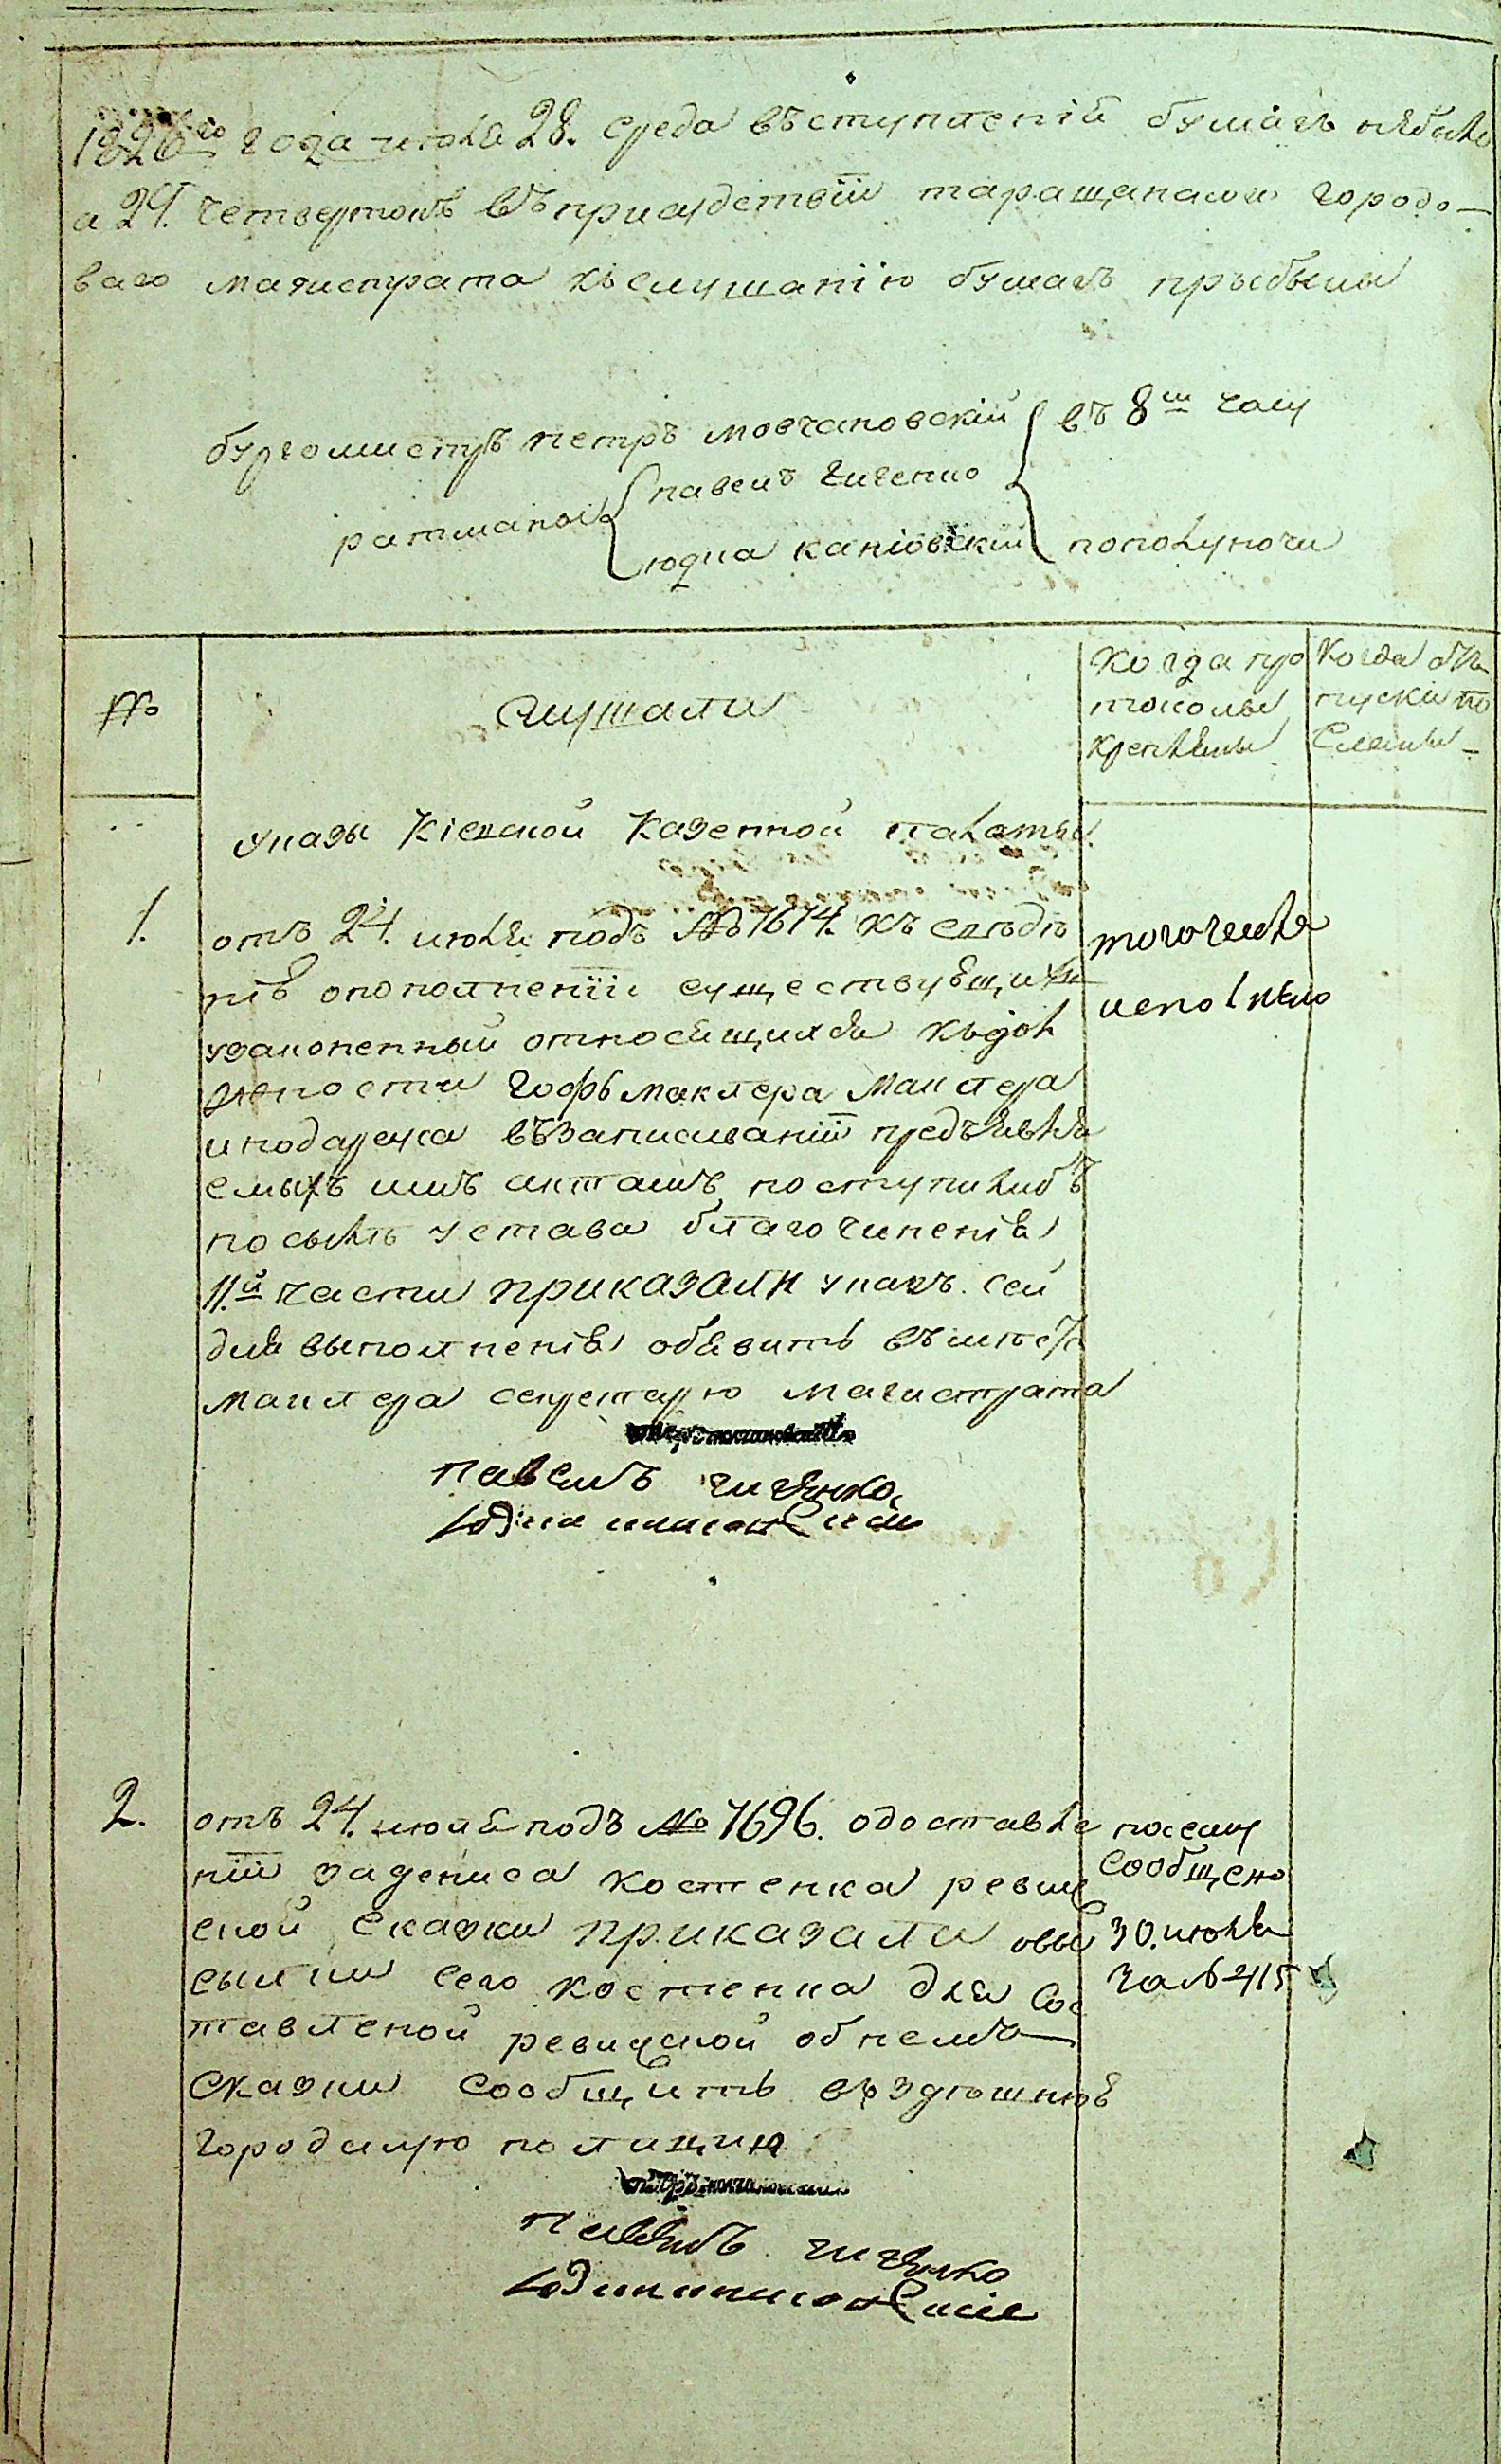 1826го года июля 28. среда въступлений бумагъ небыло
а 29. четвертокъ въ присудствіи таращанскаго городо-
ваго магистрата къслушанію бумагъ прыбыли
бургомистръ петръ мовчановскій въ 8м часу
ратманы павелъ чиченко
юдка каніовскій пополуночи
№
слушали
когда про
токолы
крепляны
Когда отъ
пуски по
Сланы -
указы Кіевской Казенной палаты
1.
отъ 24. июля подъ № 7674. къ сведѣ
нія опополненіи существующихъ
узаконенный относящихся къдол
жности гофъ маклера маклера
и нодаруса въ записываній предъявля
емыхъ имъ актамъ поступилибъ
посылѣ устава благочиненія
11.й части приказали указъ сей
для выполненія обявить въместе
маклера секретарю магистрата
павелъ чиченко
того числа
исполнено
2.
отъ 24. июля подъ № 7696. одоставле
ніи за дениса костенка ревиз
ской сказки приказали овы
сылки сего костенка для сос
тавленой ревизской обнемъ
сказки сообщить въ здѣшнюю
городскую полицию
павелъ чиченко
посему
сообщено
30. июля
за № 415